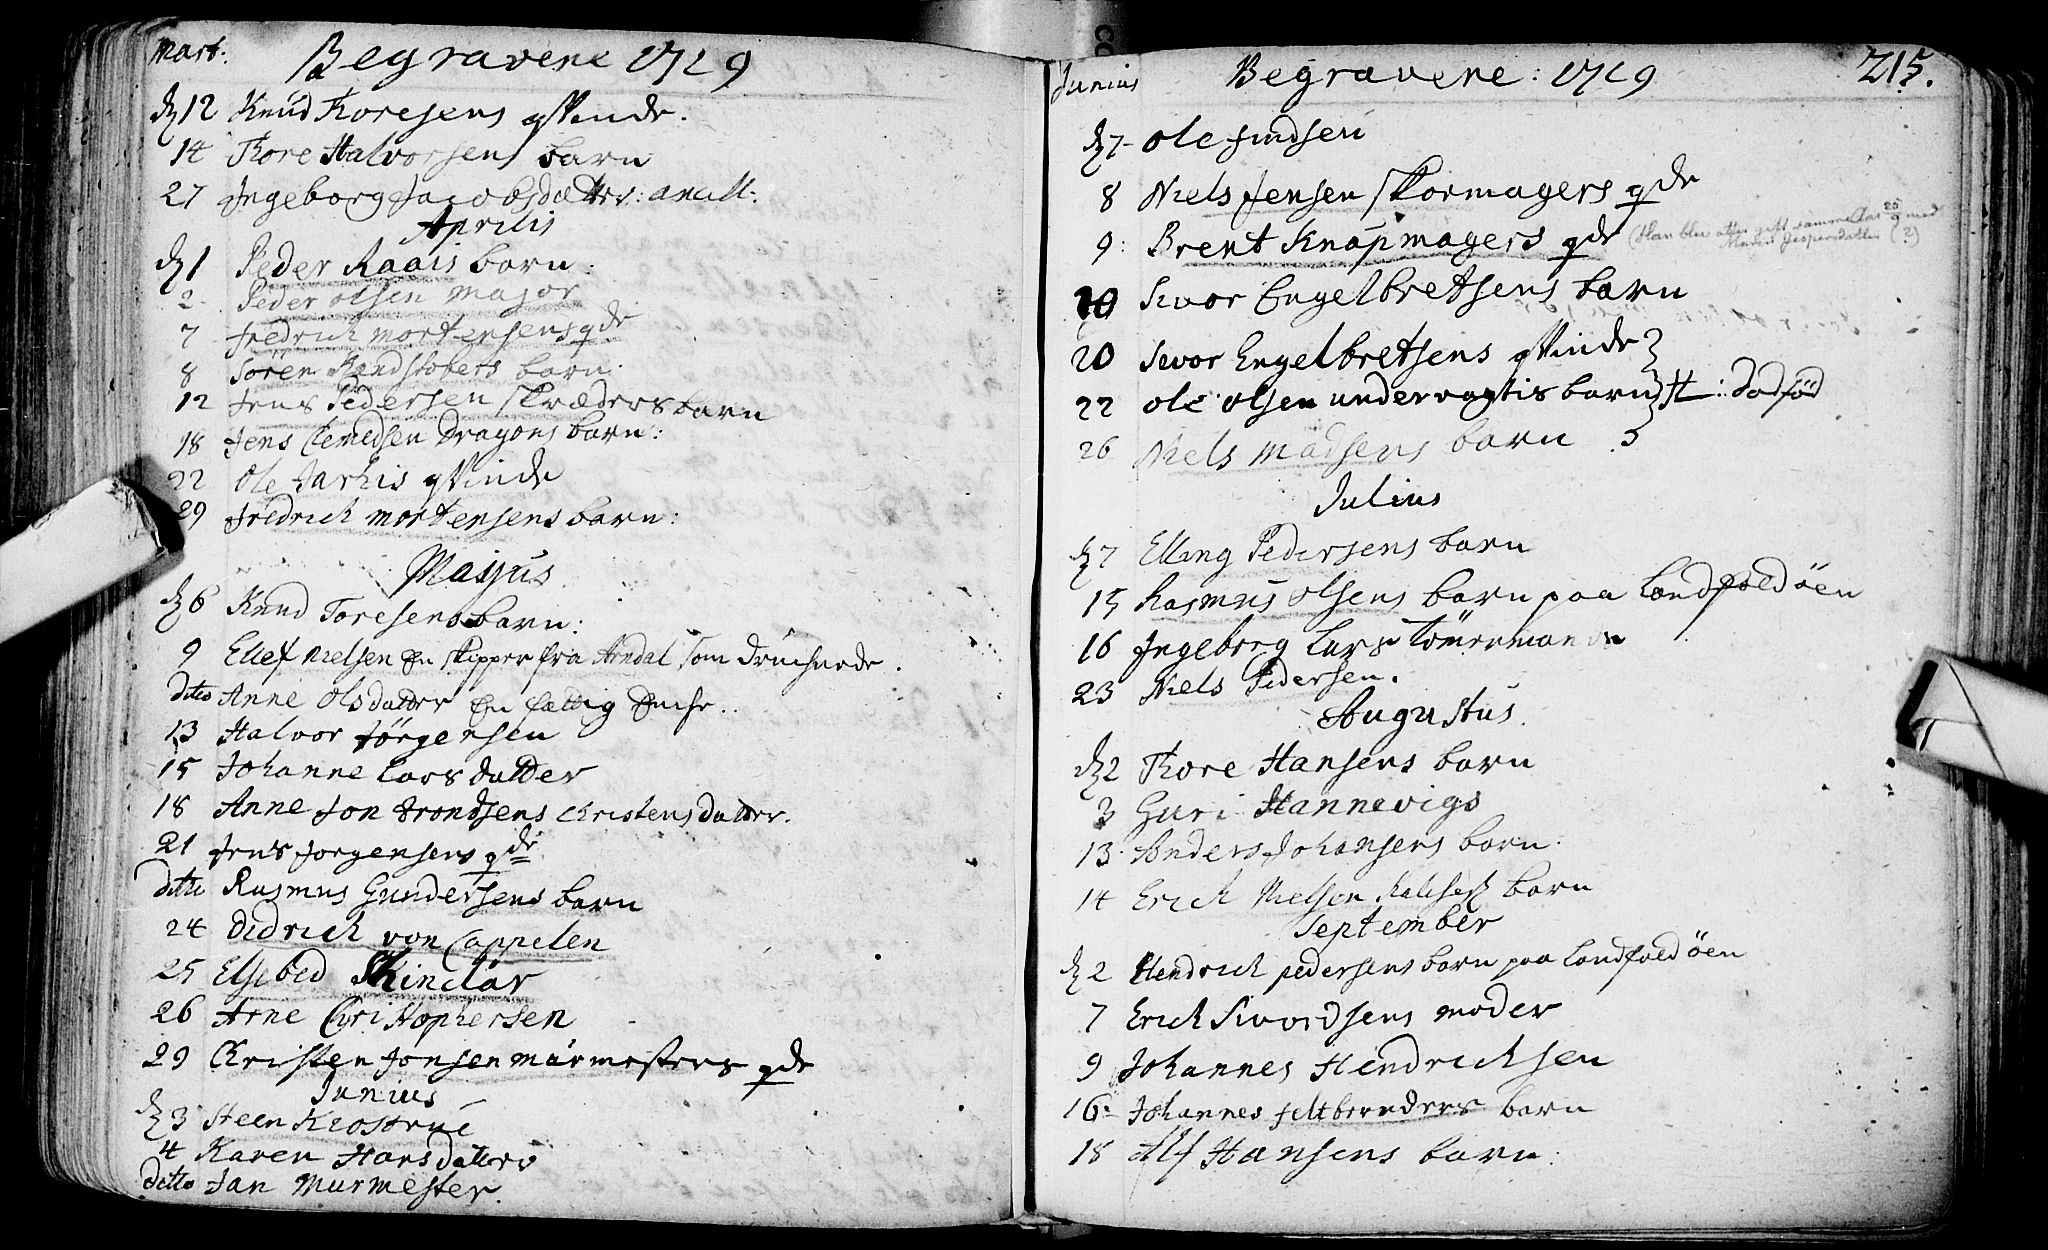 Mart:
Begravene 1719
d 12 Knud Thoresens qVinde.
14 Thore Halvorsens barn
27 Ingeborg Jacobsdatter:
Aprilis
d 1 Peder Raais barn:
2 Peder olsen major
7 fredrich mortensens qde
8 Sören barn.
12 Jens Pedersen skræders barn
18 Jens Clemedsen Dragons barn:
22 Ole Jarhis qVinde
29 fredrich mortensens barn:
Majus
d 6 Knud Toresens barn:
9 Elief Nielsen En skipper fra Arndal som druchnede.
dito Anne olsdatter En fattig Enche..
13 Halvor Jörgensen
15 Johanne Lars datter
18 Anne Jon trondsens Christens datter.
21 Jens Jorgensens qde
ditto Rasmus Gundersens barn
24 Didrich von Cappelen
25 Elsebed Skindar
26 Arne Christophersen
29 Christen Jonsen mürmesters qde
Junius
d 3 Steen
4 Karen Hansdatter
ditto Jan Murmester.
Junius
Begravene: 1719
215.
d 7 Ole findsen
8 Niels Jensen skormagers qde
9: Brent Knapmagers qde (Han blev atter gift samme Aar med Jespersdatter (?)
10 Sivor Engelbretsens barn
20 Sivor Engelbretsens qVinde
22 Ole olsen undervogtis barn H: dodföd
26 Niels Madsens barn
Julius
d 7 Elling Pedersens barn
15 Rasmus olsens barn paa Landfald öen
16 Ingeborg Lars Tömermands
23 Niels Pedersen.
Augustus.
d 2 Thore Hansens barn
3 Guri Hannevigs
13 Anders Johansens barn.
14 Erich Nielsen barn
September
d 2 Hendrich pedersens barn paa Landfald öen
7 Erich Sivordsens moder
9 Johannes Hendrichsen
16: Johannes feltbereders barn
18 Alf Hansens barn: